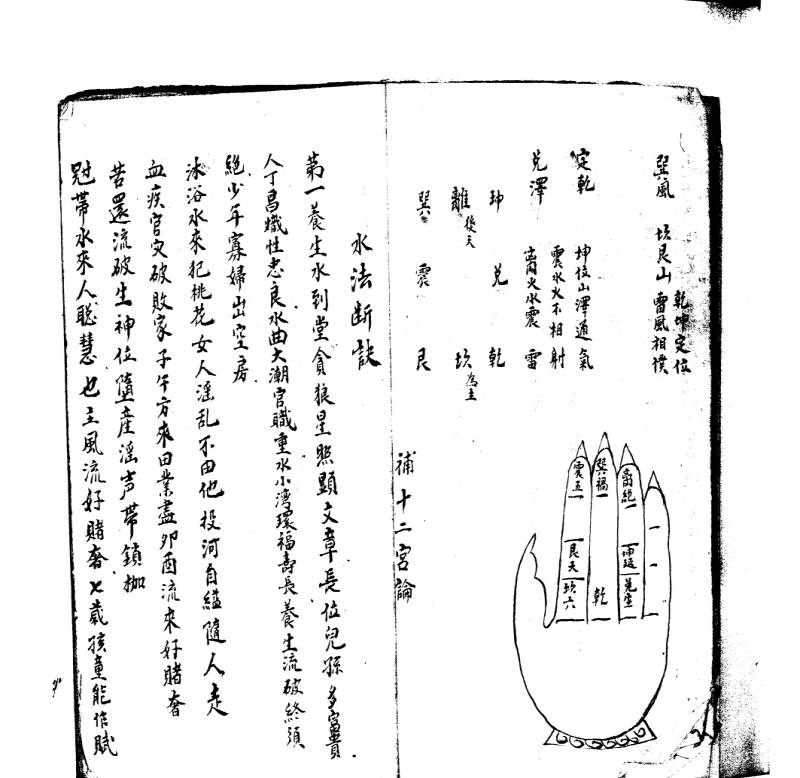 乾坤定位
巽風 坎艮山 雷風相撲
定乾 坤位山澤通氣
震水火不相射
兌澤 离火水震雷
坤 兌 乾
離 後天 坎 為主
巽 震 艮
震五 巽禍 离絕
艮天 坎六 乾 坤延 兌生
補十二宮論
水法断訣
第一養生水到堂貪狼星照顯文章長位兒孫多富貴
人丁昌熾性忠良水曲大潮官職重水小湾環福壽長養生流破終須
絕少年寡婦出空房
沐浴水來犯桃花女人淫乱不由他投河自縊隨人走
血疾官災破敗家子午方來田業盡卯酉流來好賭奢
若還流破生神位墮産淫声帶鎖枷
冠帶水來人聪慧也主風流好賭奢七歲孩童能作賦